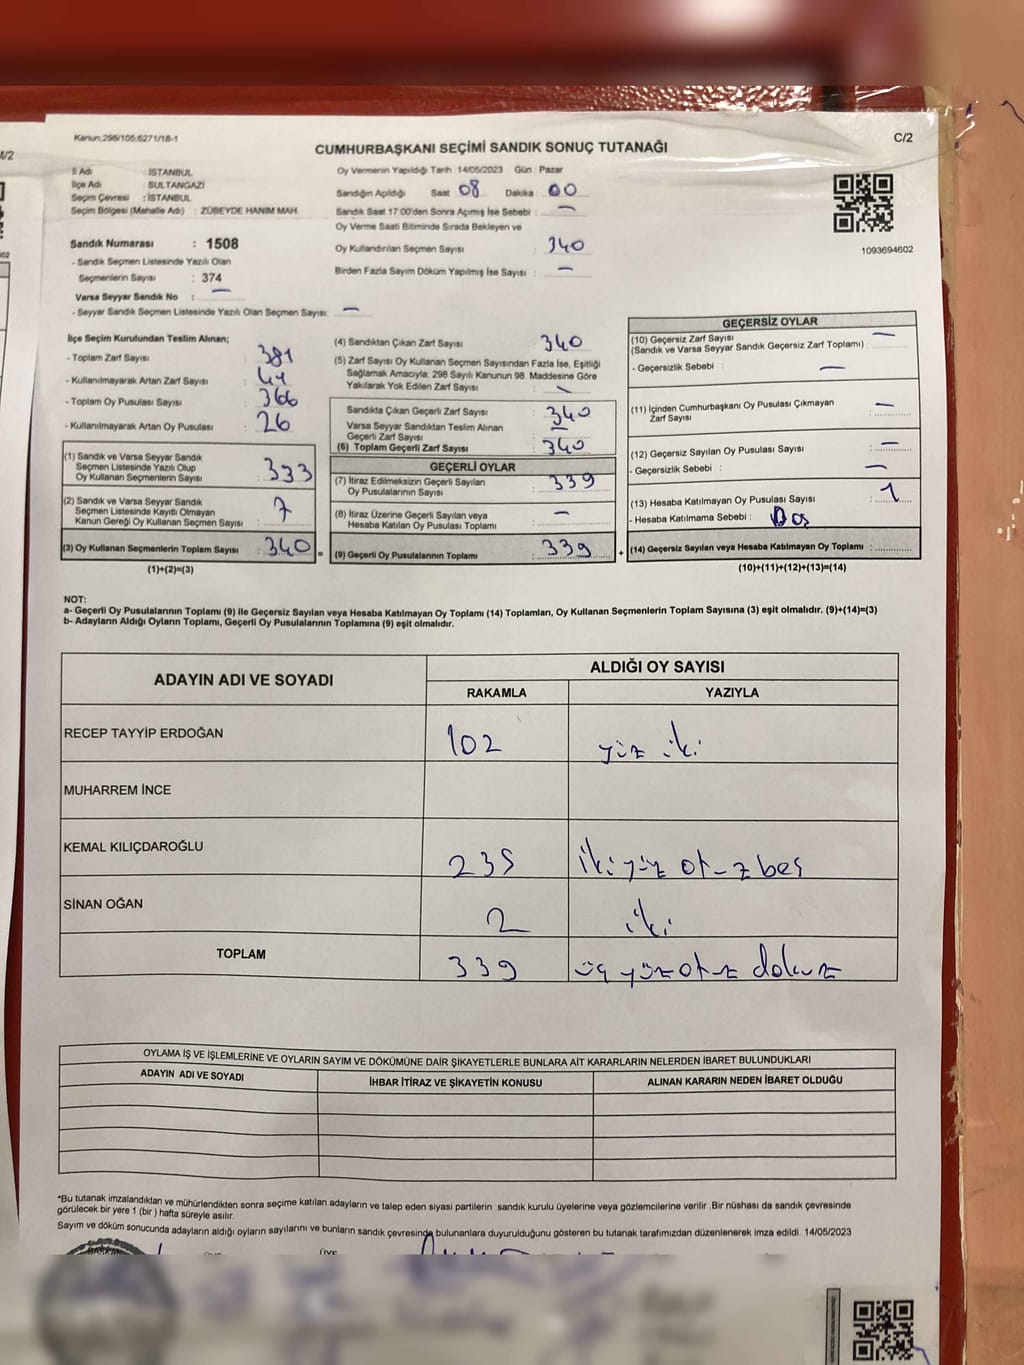 Kanun:298/105,6271/18-1
C/2
CUMHURBAŞKANI SEÇİMİ SANDIK SONUÇ TUTANAĞI
İl Adı : İSTANBUL
İlçe Adı : SULTANGAZİ
Seçim Çevresi : İSTANBUL
Seçim Bölgesi (Mahalle Adı) : ZÜBEYDE HANIM MAH.
Sandık Numarası : 1508
- Sandık Seçmen Listesinde Yazılı Olan
Seçmenlerin Sayısı : 374
Varsa Seyyar Sandık No : —
- Seyyar Sandık Seçmen Listesinde Yazılı Olan Seçmen Sayısı: —
Oy Vermenin Yapıldığı Tarih 14/05/2023 Gün : Pazar
Sandığın Açıldığı Saat 08 Dakika : 00
Sandık Saat 17:00'den Sonra Açımış İse Sebebi : —
Oy Verme Saati Bitiminde Sırada Bekleyen ve
Oy Kullandırılan Seçmen Sayısı : 340
Birden Fazla Sayım Döküm Yapılmış İse Sayısı : —
1093694602
İlçe Seçim Kurulundan Teslim Alınan;
- Toplam Zarf Sayısı : 381
- Kullanılmayarak Artan Zarf Sayısı : 41
- Toplam Oy Pusulası Sayısı : 366
- Kullanılmayarak Artan Oy Pusulası : 26
(1) Sandık ve Varsa Seyyar Sandık
Seçmen Listesinde Yazılı Olup
Oy Kullanan Seçmenlerin Sayısı : 333
(2) Sandık ve Varsa Seyyar Sandık
Seçmen Listesinde Kayıtlı Olmayan
Kanun Gereği Oy Kullanan Seçmen Sayısı : 7
(3) Oy Kullanan Seçmenlerin Toplam Sayısı : 340 =
(1)+(2)=(3)
(4) Sandıktan Çıkan Zarf Sayısı : 340
(5) Zarf Sayısı Oy Kullanan Seçmen Sayısından Fazla İse, Eşitliği
Sağlamak Amacıyla; 298 Sayılı Kanunun 98. Maddesine Göre
Yakılarak Yok Edilen Zarf Sayısı : —
Sandıkta Çıkan Geçerli Zarf Sayısı : 340
Varsa Seyyar Sandıktan Teslim Alınan
Geçerli Zarf Sayısı : —
(6) Toplam Geçerli Zarf Sayısı : 340
GEÇERLİ OYLAR
(7) İtiraz Edilmeksizin Geçerli Sayılan
Oy Pusulalarının Sayısı : 339
(8) İtiraz Üzerine Geçerli Sayılan veya
Hesaba Katılan Oy Pusulası Toplamı : —
(9) Geçerli Oy Pusulalarının Toplamı : 339 +
GEÇERSİZ OYLAR
(10) Geçersiz Zarf Sayısı
(Sandık ve Varsa Seyyar Sandık Geçersiz Zarf Toplamı) : —
- Geçersizlik Sebebi : —
(11) İçinden Cumhurbaşkanı Oy Pusulası Çıkmayan
Zarf Sayısı : —
(12) Geçersiz Sayılan Oy Pusulası Sayısı : —
- Geçersizlik Sebebi : —
(13) Hesaba Katılmayan Oy Pusulası Sayısı : 1
- Hesaba Katılmama Sebebi :
(14) Geçersiz Sayılan veya Hesaba Katılmayan Oy Toplamı :
(10)+(11)+(12)+(13)=(14)
NOT:
a- Geçerli Oy Pusulalarının Toplamı (9) ile Geçersiz Sayılan veya Hesaba Katılmayan Oy Toplamı (14) Toplamları, Oy Kullanan Seçmenlerin Toplam Sayısına (3) eşit olmalıdır. (9)+(14)=(3)
b- Adayların Aldığı Oyların Toplamı, Geçerli Oy Pusulalarının Toplamına (9) eşit olmalıdır.
ADAYIN ADI VE SOYADI
ALDIĞI OY SAYISI
RAKAMLA YAZIYLA
RECEP TAYYİP ERDOĞAN 102 yüz iki
MUHARREM İNCE
KEMAL KILIÇDAROĞLU 235 iki yüz otuzbeş
SİNAN OĞAN 2 iki
TOPLAM 339 üç yüz otuz dokuz
OYLAMA İŞ VE İŞLEMLERİNE VE OYLARIN SAYIM VE DÖKÜMÜNE DAİR ŞİKAYETLERLE BUNLARA AİT KARARLARIN NELERDEN İBARET BULUNDUKLARI
ADAYIN ADI VE SOYADI İHBAR İTİRAZ VE ŞİKAYETİN KONUSU ALINAN KARARIN NEDEN İBARET OLDUĞU
*Bu tutanak imzalandıktan ve mühürlendikten sonra seçime katılan adayların ve talep eden siyasi partilerin sandık kurulu üyelerine veya gözlemcilerine verilir. Bir nüshası da sandık çevresinde
görülecek bir yere 1 (bir ) hafta süreyle asılır.
Sayım ve döküm sonucunda adayların aldığı oyların sayılarını ve bunların sandık çevresinde bulunanlara duyurulduğunu gösteren bu tutanak tarafımızdan düzenlenerek imza edildi. 14/05/2023